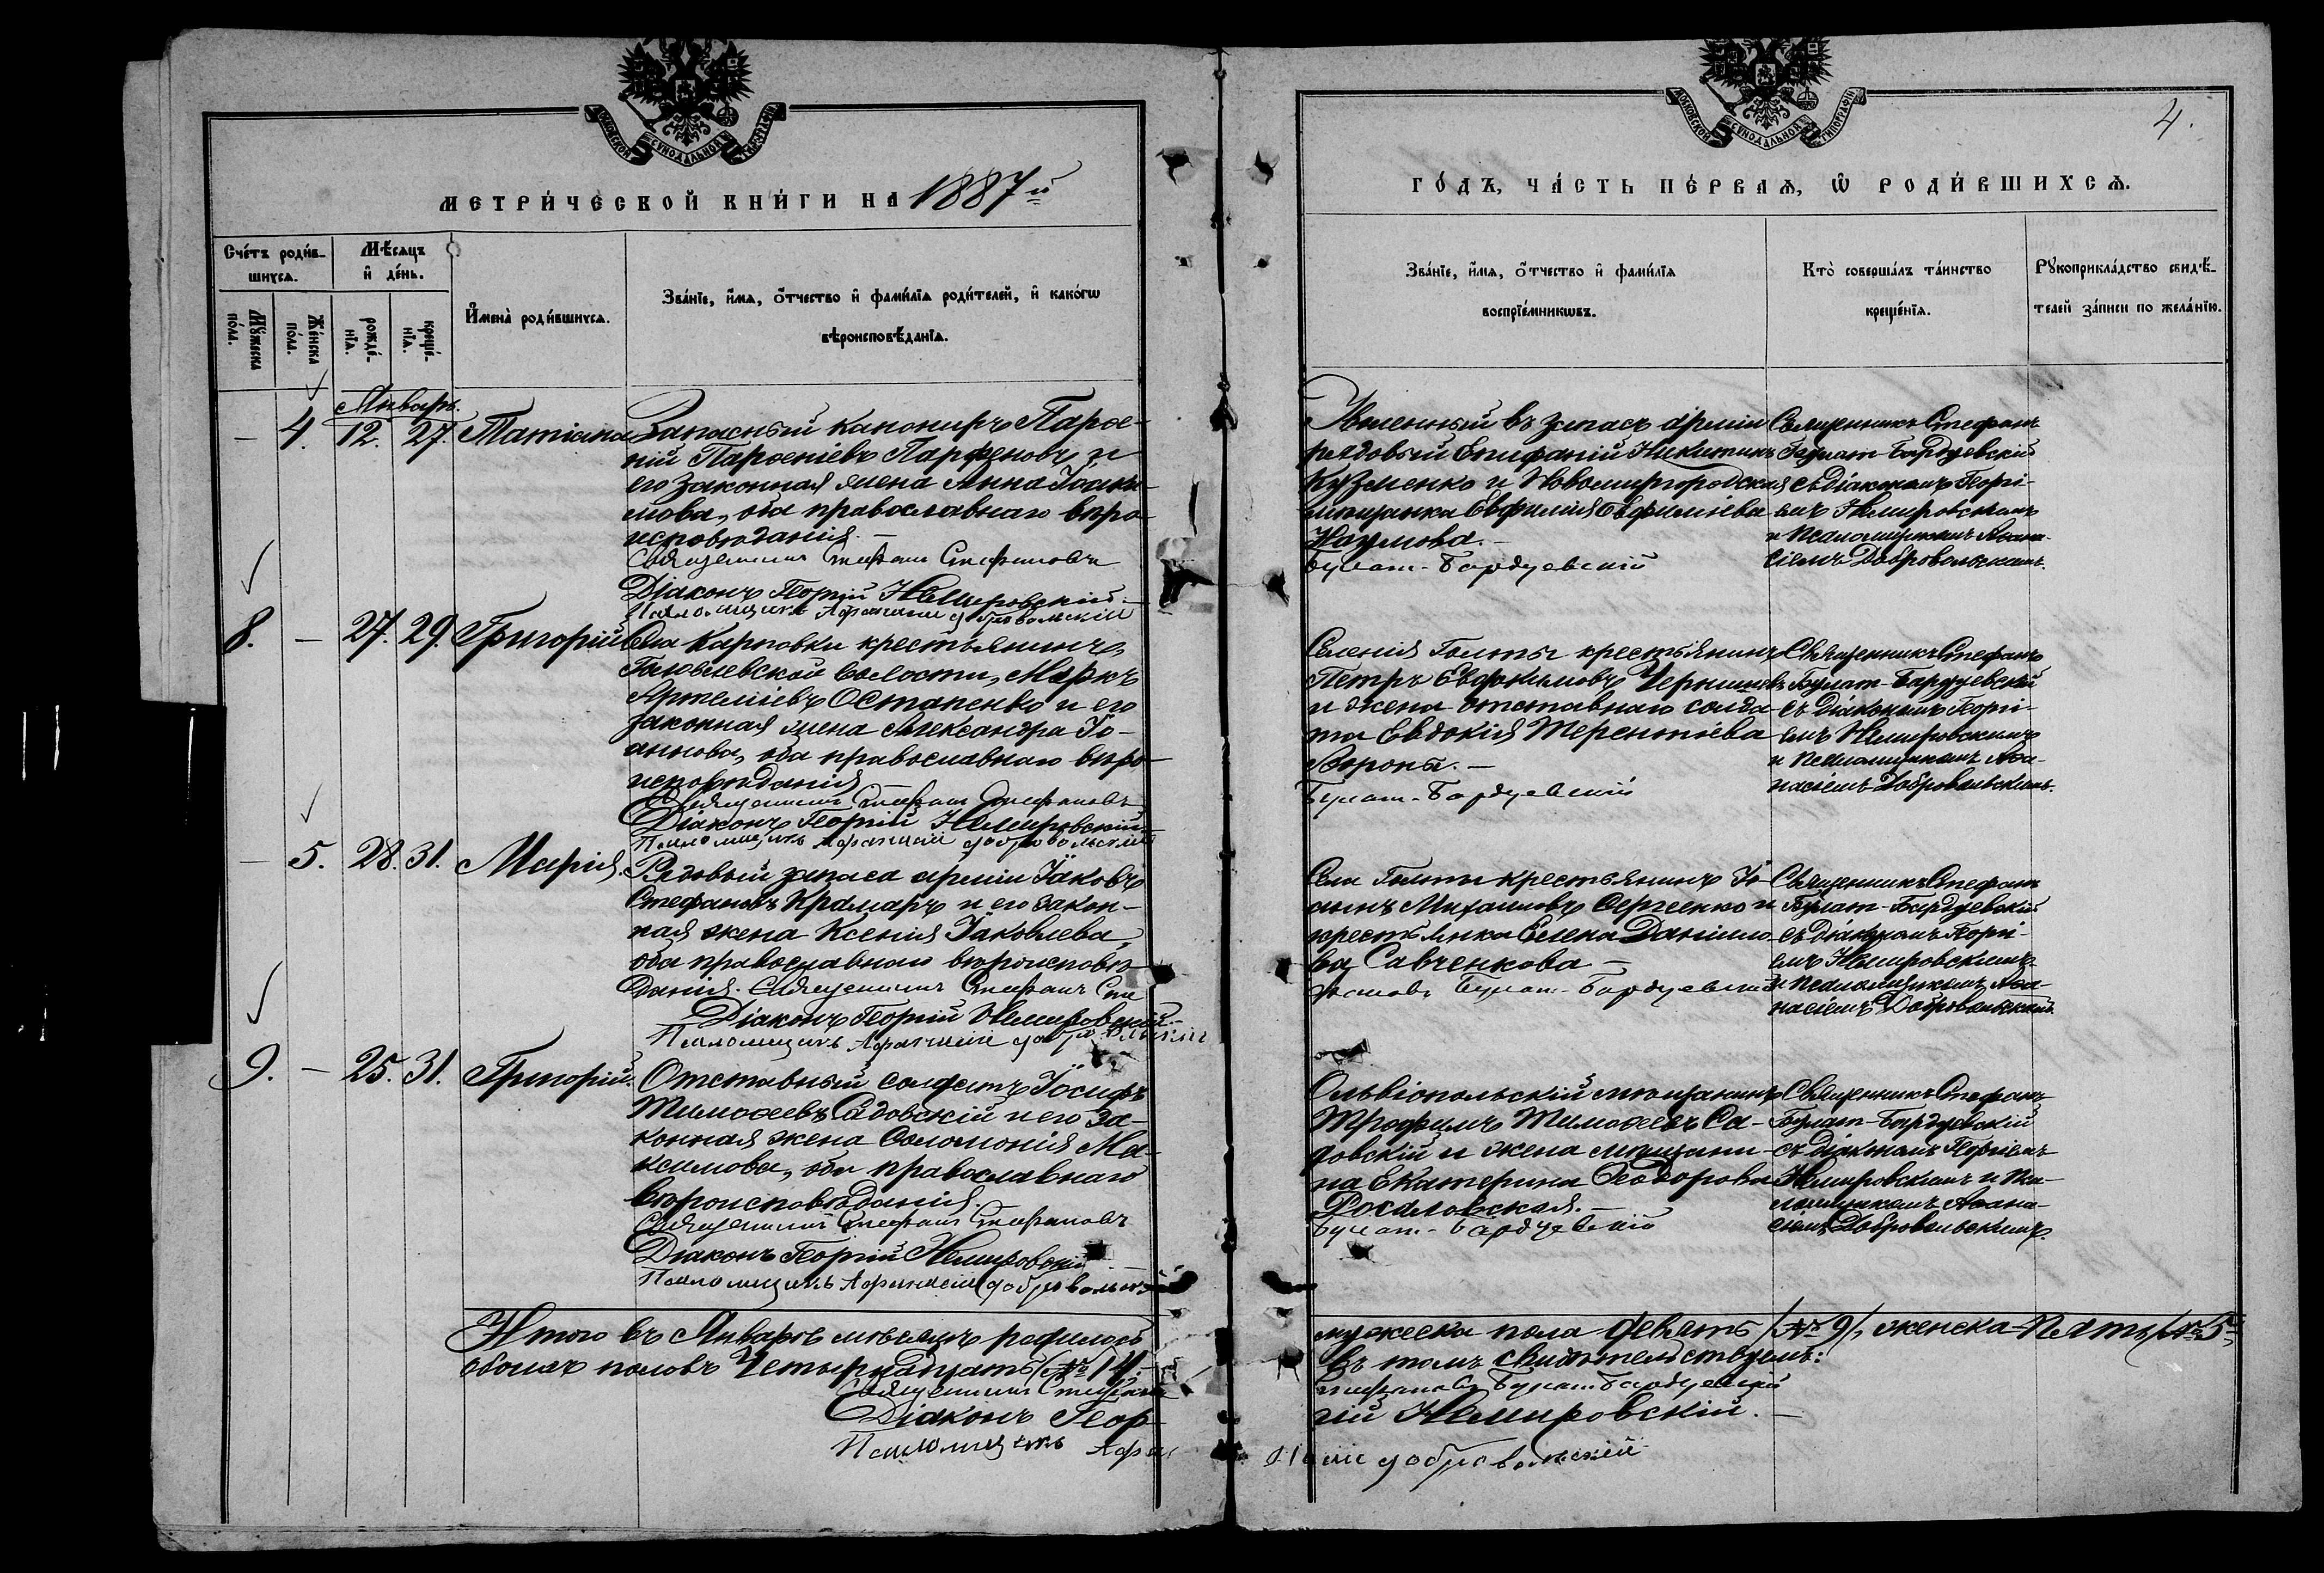 МОСКОВСКОЙ СѴНОДАЛЬНОЙ ТИПОГРАФІИ
МЕТРИ́ЧЕСКОЙ КНИ́ГИ НА 1887й
Сче́тъ роди́в-
шихсѧ.
Мѣ́сѧцъ
и҆ де́нь.
Мꙋ́жеска
по́ла.
Же́нска
по́ла.
рожде́-
нїѧ.
креще́-
нїѧ.
И҆мена̀ роди́вшихсѧ.
Зва́нїе, и҆́мѧ, ѻ҆́тчество и҆ фами́лїѧ роди́телей, и҆ како́гѡ
вѣроисповѣ́данїѧ.
Январь.
— 4. 12. 27. Татіана
Запасный канониръ Парѳе-
ній Парѳеніевъ Парфеновъ и
его законная жена Анна Іоаки-
мова, оба православнаго вѣро-
исповѣданія. —
Священникъ Стефанъ Стефановъ
Діаконъ Георгій Немировскій. —
Псаломщикъ Афанасій Добровольскій
8. — 27. 29. Григорій
Села Карповки крестьянинъ,
волости, Маркъ
Артеміевъ Остапенко и его
законная жена Александра Іо-
аннова, оба православнаго вѣро-
исповѣданія
Священникъ Стефанъ Стефановъ
Діаконъ Георгій Немировскій —
Псаломщикъ Афанасій Добровольскій
— 5. 28. 31. Марія.
Рядовый запаса арміи Іаковъ
Стефановъ Крамаръ и его закон-
ная жена Ксенія Іаковлева,
оба православнаго вѣроисповѣ-
данія. Священникъ Стефанъ Сте
Діаконъ Георгій Немировскій. —
Псаломщикъ Афанасій Добровольскій
9. — 25. 31. Григорій.
Отставный солдатъ Іосифъ
Тимоѳеевъ Садовскій и его за-
конная жена Соломонія Ма-
ксимова, оба православнаго
вѣроисповѣданія.
Священникъ Стефанъ Стефановъ
Діаконъ Георгій Немировскій. —
Псаломщикъ Афанасій Добровольскій
Итого въ Январѣ мѣсяцѣ родилось
обоихъ половъ Четырнадцать (№ 14.
Священникъ Стефанъ
Діаконъ Геор-
Псаломщикъ Афа
МОСКОВСКОЙ СѴНОДАЛЬНОЙ ТИПОГРАФІИ
4.
ГО́ДЪ, ЧА́СТЬ ПЕ́РВАѦ, Ѡ҆ РОДИ́ВШИХСѦ.
Зва́нїе, и҆́мѧ, ѻ҆́тчество и҆ фами́лїѧ
воспрїе́мникѡвъ.
Кто̀ соверша́лъ та́инство
креще́нїѧ.
Рꙋкоприкла́дство свидѣ́-
телей за́писи по жела́нїю.
Уволенный въ запасъ арміи
рядовый Епифаній Никитинъ
Кузменко и Новомиргородская
мѣщанка Евфимія Евфиміева
Наумова. —
Булат-Бардуевскій
Священникъ Стефанъ
Булат-Бардуевскій
съ діакономъ Георгі-
емъ Немировскимъ
и псаломщикомъ Аѳана-
сіемъ Добровольскимъ.
Селенія Голты крестьянинъ
Петръ Евдокимовъ Чернышевъ
и жена отставнаго солда-
та Евдокія Терентіева
Ворона. —
Булат-Бардуевскій
Священникъ Стефанъ
Булат-Бардуевскій
съ діакономъ Георгі-
емъ Немировскимъ
и псаломщикомъ Аѳа-
насіемъ Добровольскимъ.
Села Голты крестьянинъ Іо-
аннъ Михаиловъ Сергеенко и
крестьянка Елена Даніило-
ва Савченкова —
фановъ Булат-Бардуевскій
Священникъ Стефанъ
Булат-Бардуевскій
съ діакономъ Георгі-
емъ Немировскимъ
и псаломщикомъ Аѳа-
насіемъ Добровольскимъ.
Ольвіопольскій мѣщанинъ
Трофимъ Тимоѳеевъ Са-
довскій и жена мѣщани-
на Екатерина Ѳеодорова
Булат-Бардуевскій
Священникъ Стефанъ
Булат-Бардуевскій
съ діакономъ Георгіемъ
Немировскимъ и пса-
ломщикомъ Аѳана-
сіемъ Добровольскимъ.
мужеска пола девять (№ 9), женска — пять (№ 5)
въ томъ свидѣтельствуемъ:
Стефановъ Булат-Бардуевскій
гій Немировскій. —
насій Добровольскій